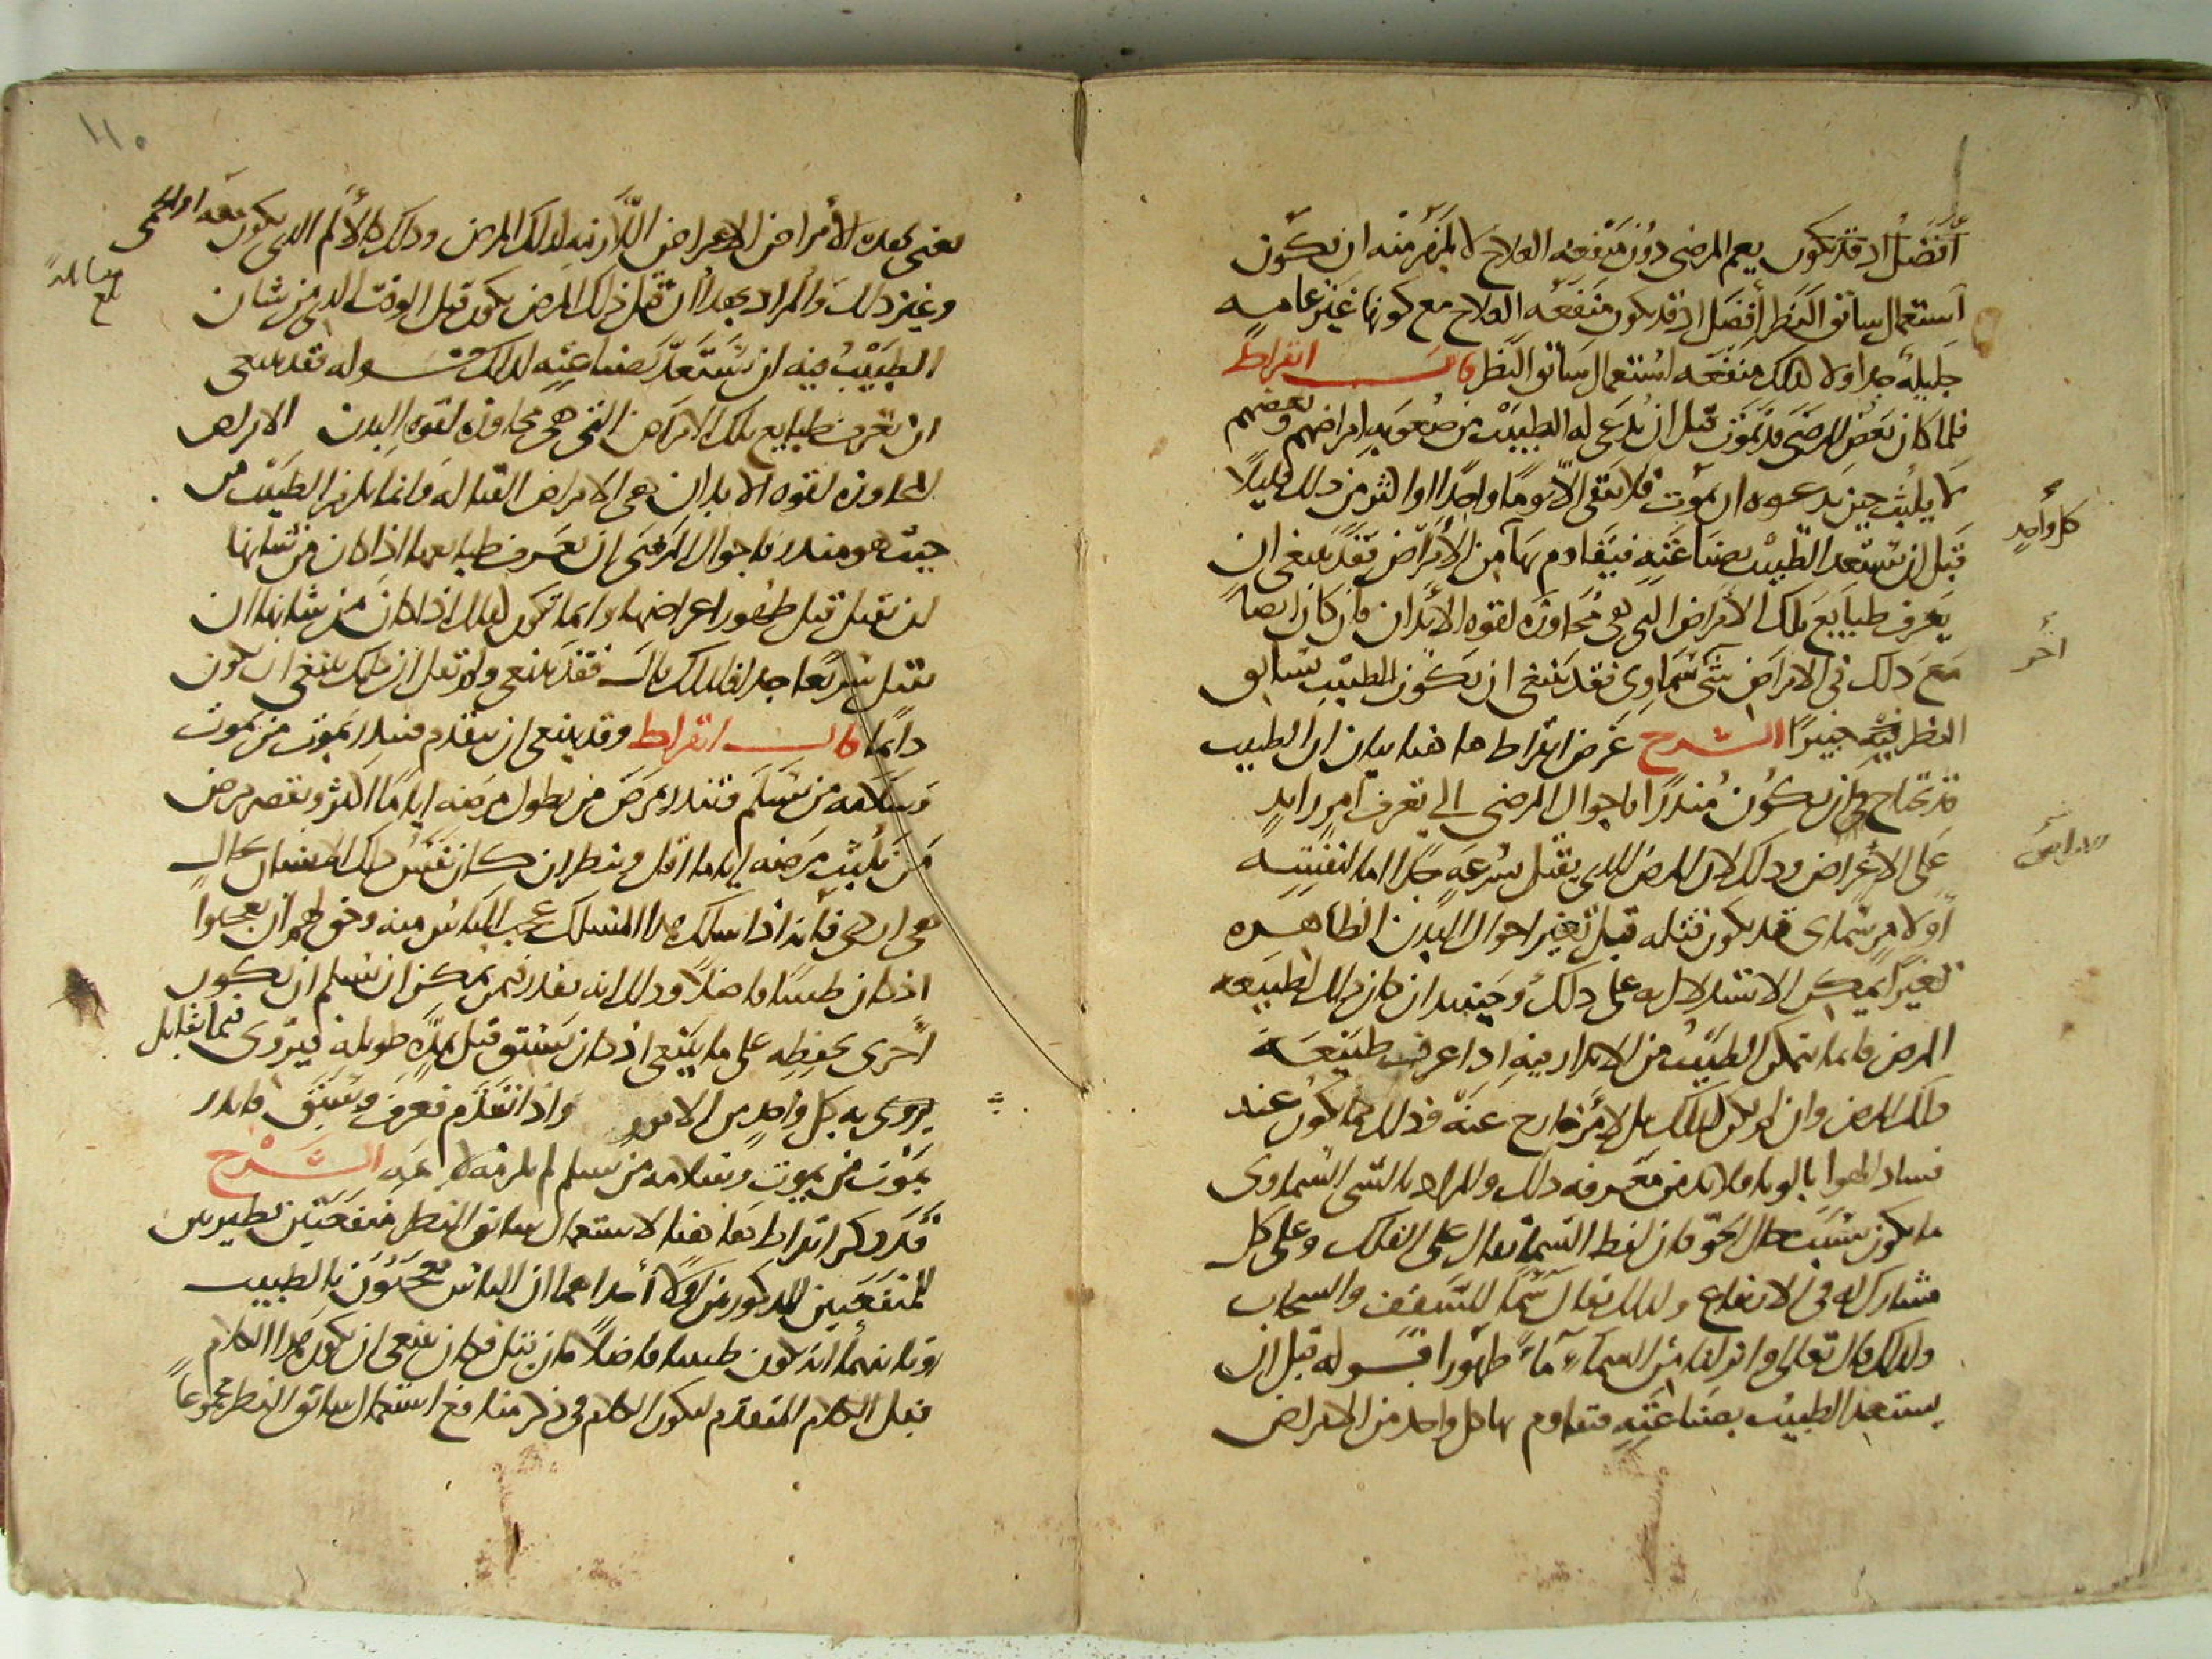 أفضل اذ قد تكون يعم المرضى دون منفعه العلاج لا يلزم منه ان تكون
استعمال سابق النظر أفضل اذ قد يكون منفعه العلاج مع كونها غير عاميه
جليله جدا ولا كذلك منفعه استعمال سابق النظر قال ابقراط
فلما كان بعض المرضى قد يموت قبل ان يدعى له الطبيب من صعوبه امراضهم وبعضهم
لا يلبث حين يدعوه ان يموت فلا يبقى الا يوما واحدا او اكثر من ذلك قليلا
قبل ان يستعد الطبيب بصناعته فيقاوم بها من الأمراض فقد ينبغي ان
كل واحد
يعرف طبايع تلك الأمراض التي هي مجاوزه لقوه الابدان فان كان ايضا
مع ذلك في الامراض شي سماوي فقد ينبغي ان يكون الطبيب بسابق
آخر
النظر فيه خبيرا الشرح غرض ابقراط ها هنا بيان ان الطبيب
قد يحتاج في ان يكون منذرا باحوال المرضى الى تعرف امر زايد
على الاعراض وذلك لان المرض الذي يقتل بسرعه جدا اما لنفسه
او لامر سماوي فقد يكون قتله قبل تغير احوال البدن الظاهره
تغيرا يمكن الاستدلال به على ذلك وحينيذ ان كان ذلك لطبيعه
المرض فانما يتمكن الطبيب من الانذار فيه اذا عرف طبيعه
ذلك المرض وان لم يكن كذلك بل لامر خارج عنه فذلك كما يكون عند
فساد الهوا بالوبا فلا بد من معرفه ذلك والمراد بالشي السماوي
ما يكون بسبب حال الجو فان لفظ السما يقال على الفلك وعلى كل
مشارك له في الارتفاع ولذلك يقال سما للسقف والسحاب
ولذلك قال تعالى وانزلنا من السماء ماء طهورا قوله قبل ان
يستعد الطبيب بصناعته فيقاوم بها كل واحد من الامراض
يعني بهذه الأمراض الاعراض اللازمه لذلك المرض وذلك كالألم الذي يكون معه او الحمى
وغير ذلك والمراد بهذا ان قتل ذلك المرض يكون قبل الوقت الذي من شان
الطبيب فيه ان يستعد بصناعته لذلك قوله فقد ينبغي
ان تعرف طبايع تلك الامراض التي هي مجاوزه لقوه البدن الامراض
المجاوزه لقوه الابدان هي الامراض القتاله وانما يلزم الطبيب من
حيث هو منذر باحوال المرضى ان يعرف طبايعها اذا كان من شانها
ان تقتل قبل ظهور اعراضها وانما تكون كذلك اذا كان من شانها ان
تقتل سريعا جدا فلذلك قال فقد ينبغي ولم تقل ان ذلك ينبغي ان يكون
دايما قال ابقراط وقد ينبغي ان يتقدم فينذر بموت من يموت
وسلامه من يسلم فينذر بمرض من يطول مرضه اياما اكثر وتقصر مرض
من يلبث مرضه اياما اقل وينظر ان كان نفس ذلك الانسان بحال
هي اردى فانه اذا سلك هذا المسلك عجب الناس منه وحق لهم ان يعجبوا
اذ كان طبيبا فاضلا وذلك انه يقدر فيمن يمكن ان يسلم ان يكون
احرى بحفظه على ما ينبغي اذ كان يسبق قبل مده طويله فيروي فيما يقابل
يروي به كل واحد من الامور واذا تقدم فعرف وسبق فانذر
بموت من يموت وسلامه من يسلم لم يلزمه لايمه الشرح
قد ذكر ابقراط ها هنا لاستعمال سابق النظر منفعتين نظيرتي
المنفعتين المذكورتين اولا احداهما ان الناس يعجبون بالطبيب
وثانيهما انه يكون طبيبا فاضلا فان قيل فكان ينبغي ان يكون هذا الكلام
قبل الكلام المتقدم ليكون الكلام في ذكر منافع استعمال سابق النظر مجموعا